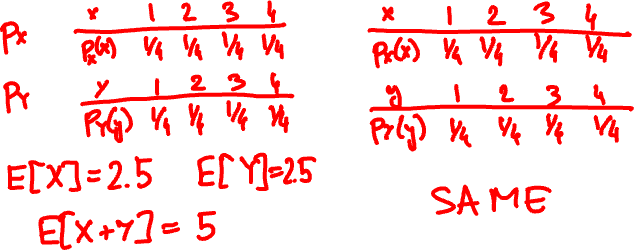 Px x 1 2 3 4
Px(x) 1/4 1/4 1/4 1/4
PY y 1 2 3 4
PY(y) 1/4 1/4 1/4 1/4
E[X]=2.5 E[Y]=2.5
E[X+Y]=5
x 1 2 3 4
Px(x) 1/4 1/4 1/4 1/4
y 1 2 3 4
PY(y) 1/4 1/4 1/4 1/4
SAME